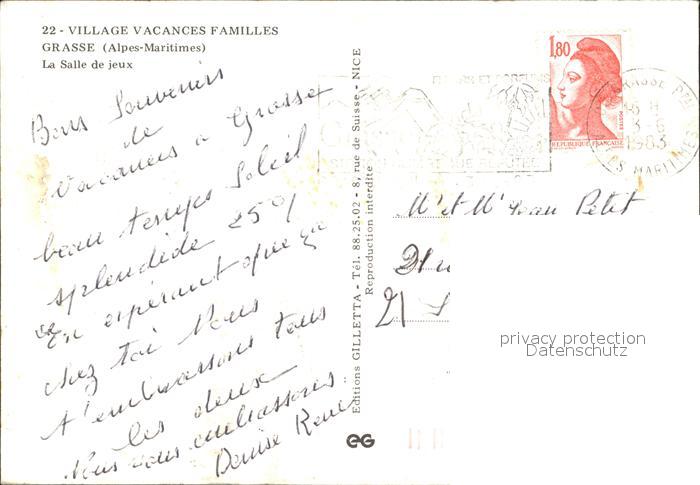 22 - VILLAGE VACANCES FAMILLES
GRASSE (Alpes-Maritimes)
La Salle de jeux
Bons Souvenirs
de
Vacances a Grasse
beau temps Soleil
splendide 25°
En espérant que ça
chez toi Nous
t'embrassons tous
les deux
Nous vous embrassons
Denise René
Editions GILLETTA - Tél. 88.25.02 - 8, rue de Suisse - NICE
Reproduction interdite
1,80
POSTES
REPUBLIQUE FRANÇAISE
GRASSE Pal
1983
MARITIMES
Mr et Mme Jean Petit
21
privacy protection
Datenschutz